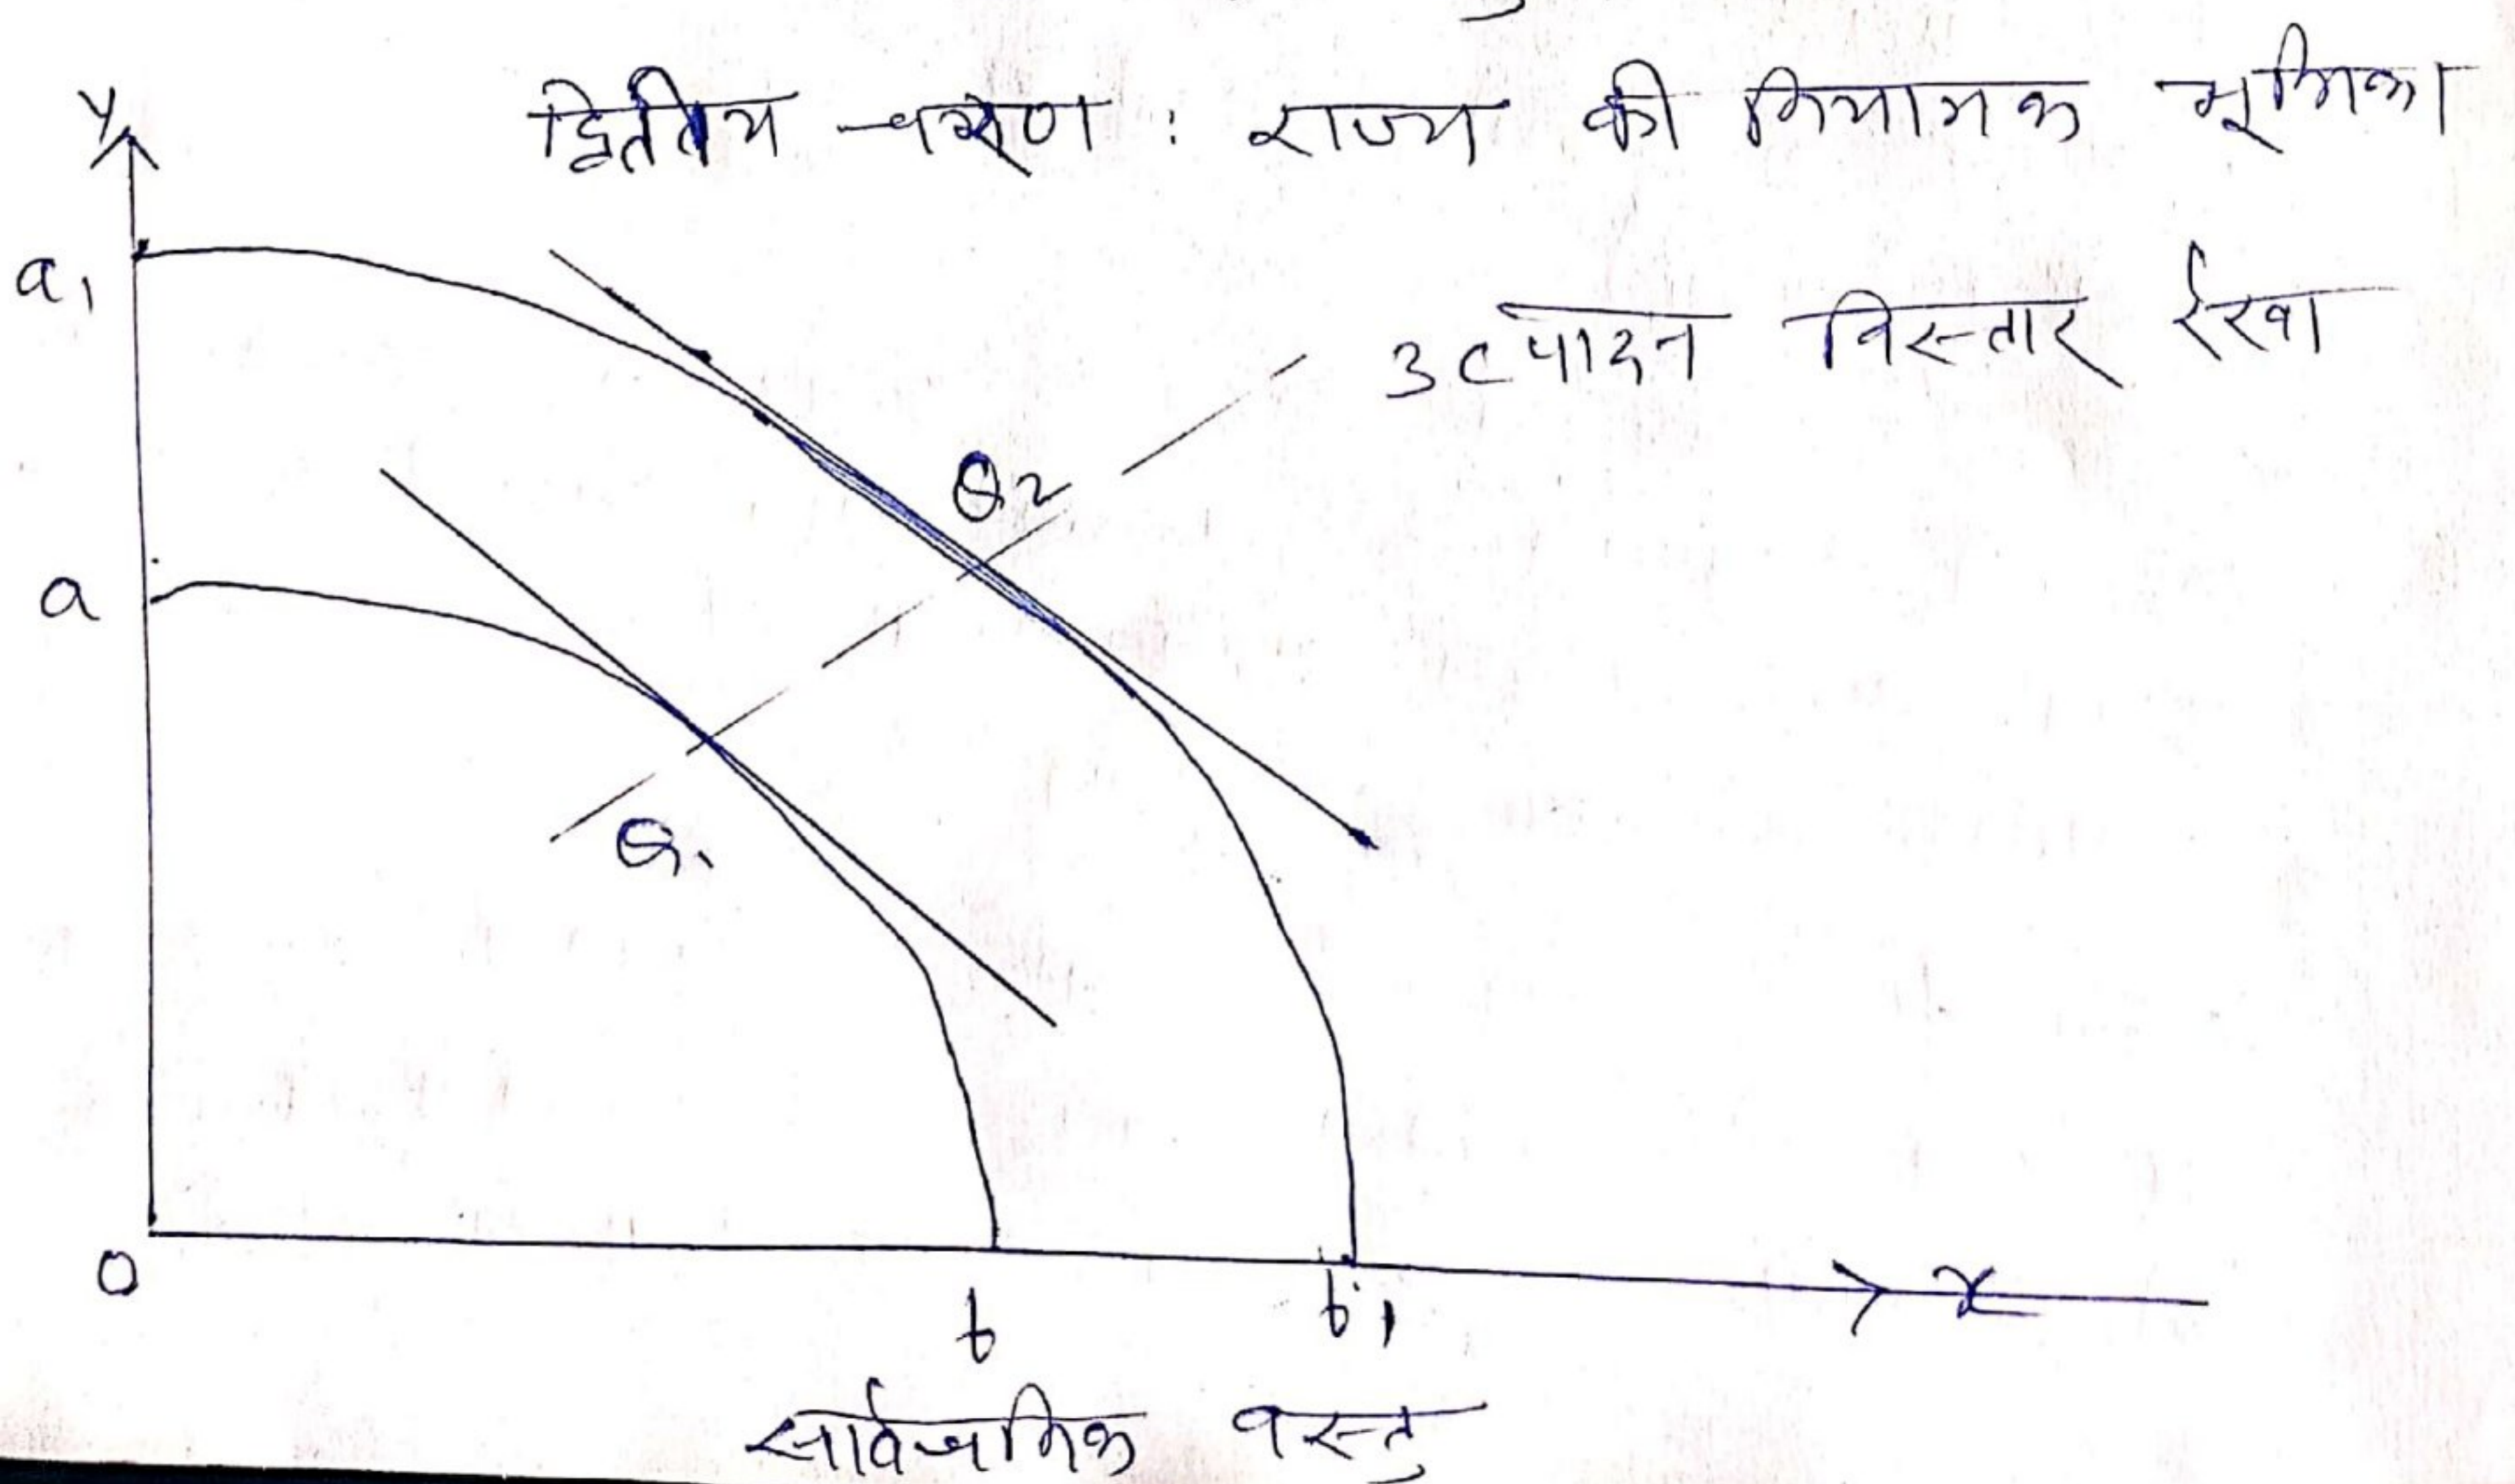 y
द्वितीय चरण : राज्य की नियामक भूमिका
a₁
उत्पादन विस्तार रेखा
Q₂
a
Q₁
O
b
b₁
x
सार्वजनिक वस्तु